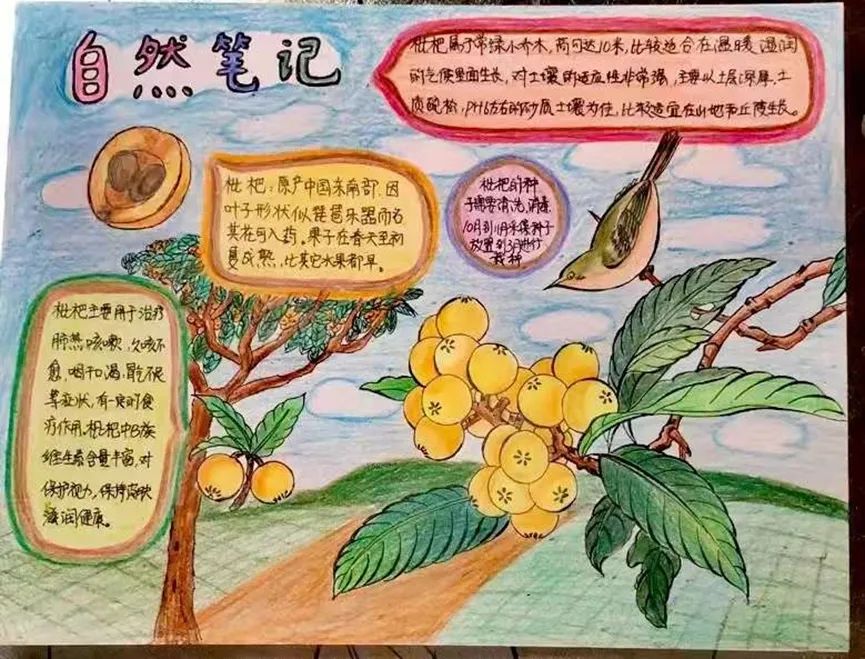 自然笔记
枇杷属于常绿小乔木,高可达10米,比较适合在温暖湿润
的气候里面生长,对土壤的适应性非常强,主要以土层深厚、土
质疏松,PH6左右的砂质土壤为佳,比较适宜在山地和丘陵生长。
枇杷:原产中国东南部,因
叶子形状似琵琶乐器而名
其花可入药。果子在春天至初
夏成熟,比其它水果都早。
枇杷的种
子需要清洗、消毒,
10月到11月采保种子
放置到3月进行
栽种
枇杷主要用于治疗
肺燥咳嗽,久咳不
愈,咽干口渴,胃气不良
等症状,有一定的食
疗作用。枇杷中B族
维生素含量丰富,对
保护视力,保持皮肤
滋润健康。